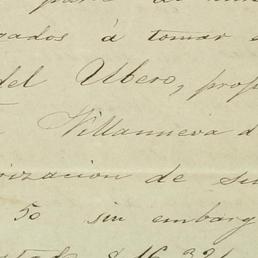 gados á tomar
del Ubero, prop
Villanueva d
rizacion de su
50 sin embarg